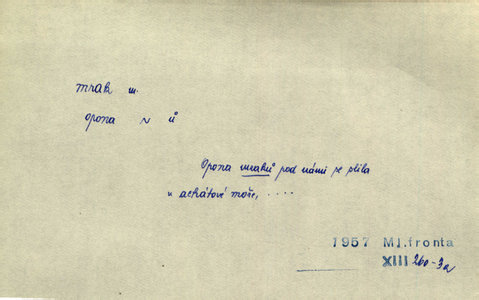 mrak m.
opona ~ ů
Opona mraků pod námi se slila
v achátové moře, ....
1957 Ml.fronta
XIII 260-3a